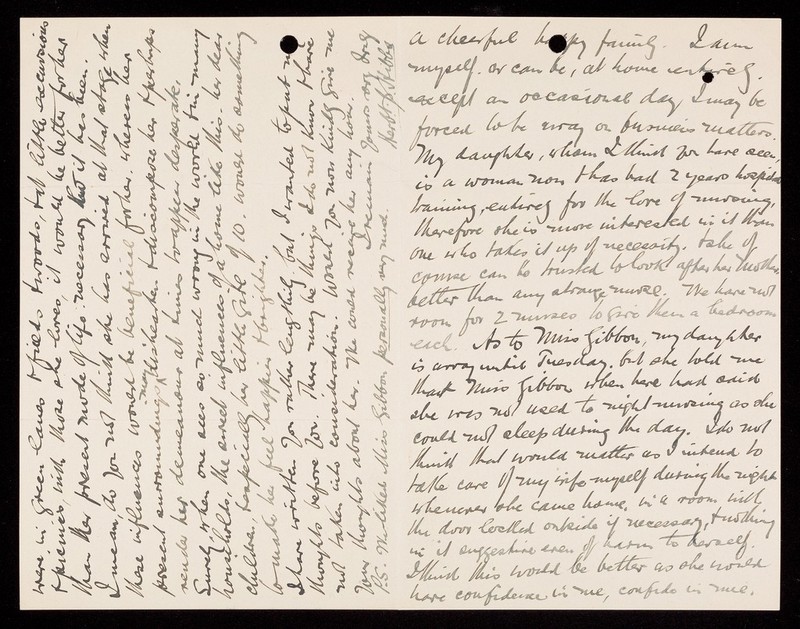 a cheerful happy family. I am
myself, or can be, at home entirely,
except an occasional day, I may be
forced to be away on business matters.
My daughter, whom I think you have seen,
is a woman now & has had 2 years hospital
training, entirely for the love of nursing,
therefore she is more interested in it than
one who takes it up of necessity. & she of
course can be trusted to look after her Mother
better than any strange nurse. We have not
room for 2 nurses to give them a bedroom
each. As to Miss Gibbon, my daughter
is away until Tuesday, but she told me
that Miss Gibbon when here had said
she was not used to night nursing as she
could not sleep during the day. I do not
think that would matter as I intend to
take care of my wife myself during the night
whenever she came home, in a room with
the door locked outside if necessary, & nothing
in it suggestive even of harm to herself.
I think this would be better as she would
have confidence in me, confide in me,
were in green lanes & fields & woods, & all little excursions
& picnics, with those she loves it would be better for her
than her present mode of life: necessary as it has been.
I mean, do you not think she has arrived at that stage when
these influences would be beneficial for her. whereas her
present surroundings may dishearten & discompose her & perhaps
render her demeanour at times & appear desperate.
Surely when one sees so much wrong in the world & in many
households, the sweet influences of a home like this her dear
children & especially her little girl of 10. would do something
to make her feel happier & brighter.
I have written you rather lengthily but I wanted to put my
thoughts before you. There may be things I do not know & have
not taken into consideration. Would you now kindly give me
your thoughts about her. We could receive her any hour.
I remain Yours very truly
P.S. I liked Miss Gibbon personally very much.